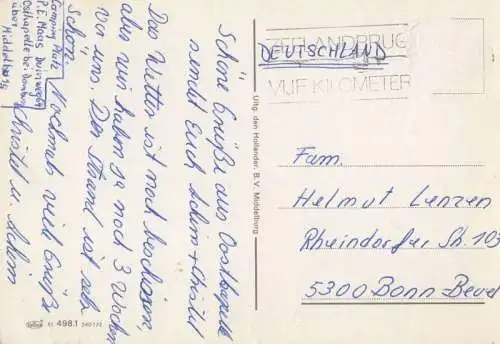 Schöne Grüße aus Oostkapelle
sendet Euch Achim + Christel
Das Wetter ist noch bescheiden,
aber wir haben ja noch 3 Wochen
vor uns. Der Strand ist sehr
schön. Nochmals viele Grüße
Christel u. Achim
Camping
P.E. Maas Duinweg
Oostkapelle bei Domburg
über Middelburg
Uitg. den Hollander. B. V. Middelburg
498.1
ZEELANDBRUG
DEUTSCHLAND
VIJF KILOMETER
Fam.
Helmut Lenzen
Rheindorfer Str. 103
5300 Bonn-Beuel